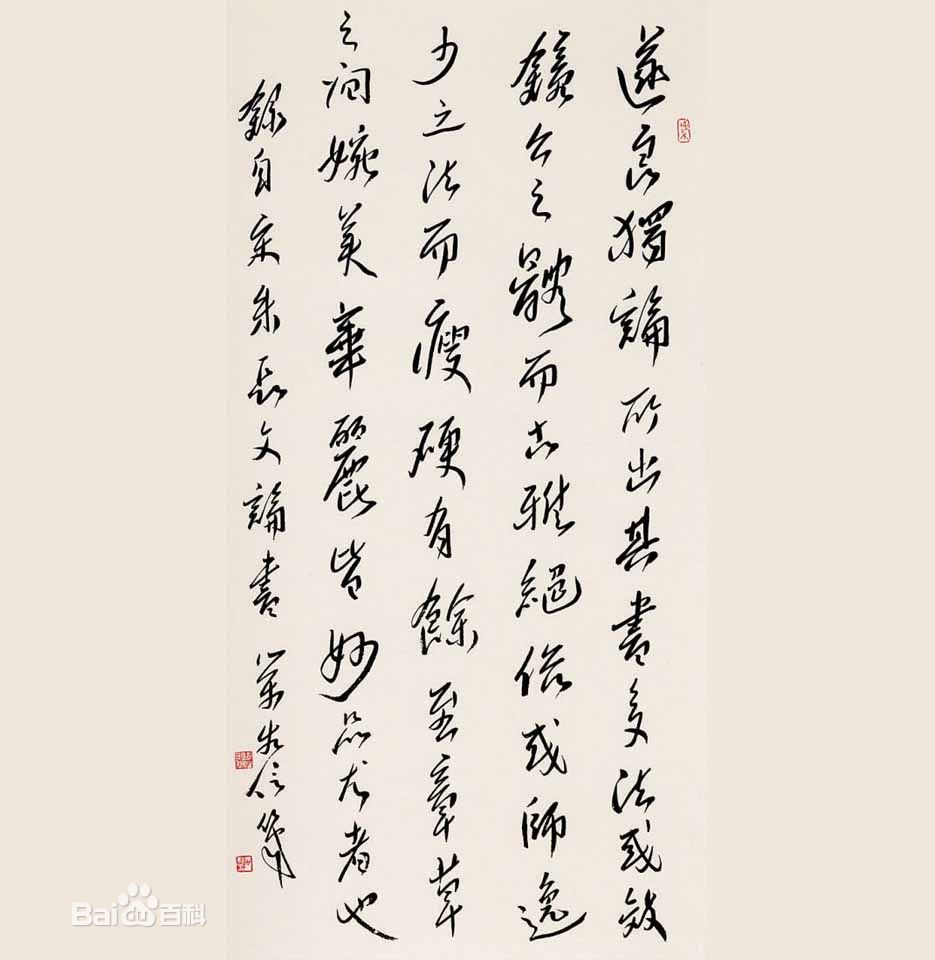 遂良獨論所出其書多法或效
鍾公之體而古雅絕俗或師逸
少之法而瘦硬有餘至章草
之間婉美華麗皆妙品尤者也
錄自宋朱長文論書
Bai百科